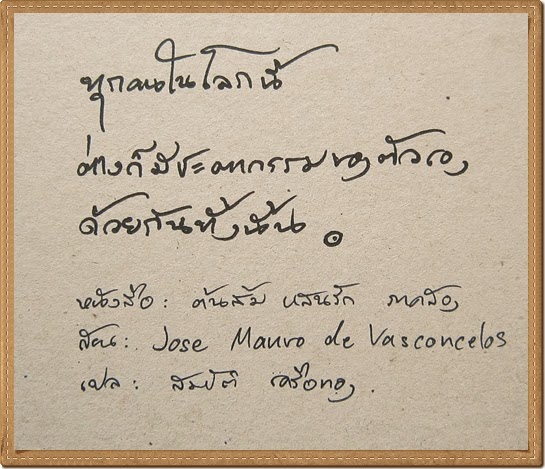 ทุกคนในโลกนี้
ต่างก็มีชะตากรรมของตัวเอง
ด้วยกันทั้งนั้น
หนังสือ: ต้นส้ม แสนรัก ภาคสอง
เขียน: Jose Mauro de Vasconcelos
แปล: สมบัติ เครือทอง